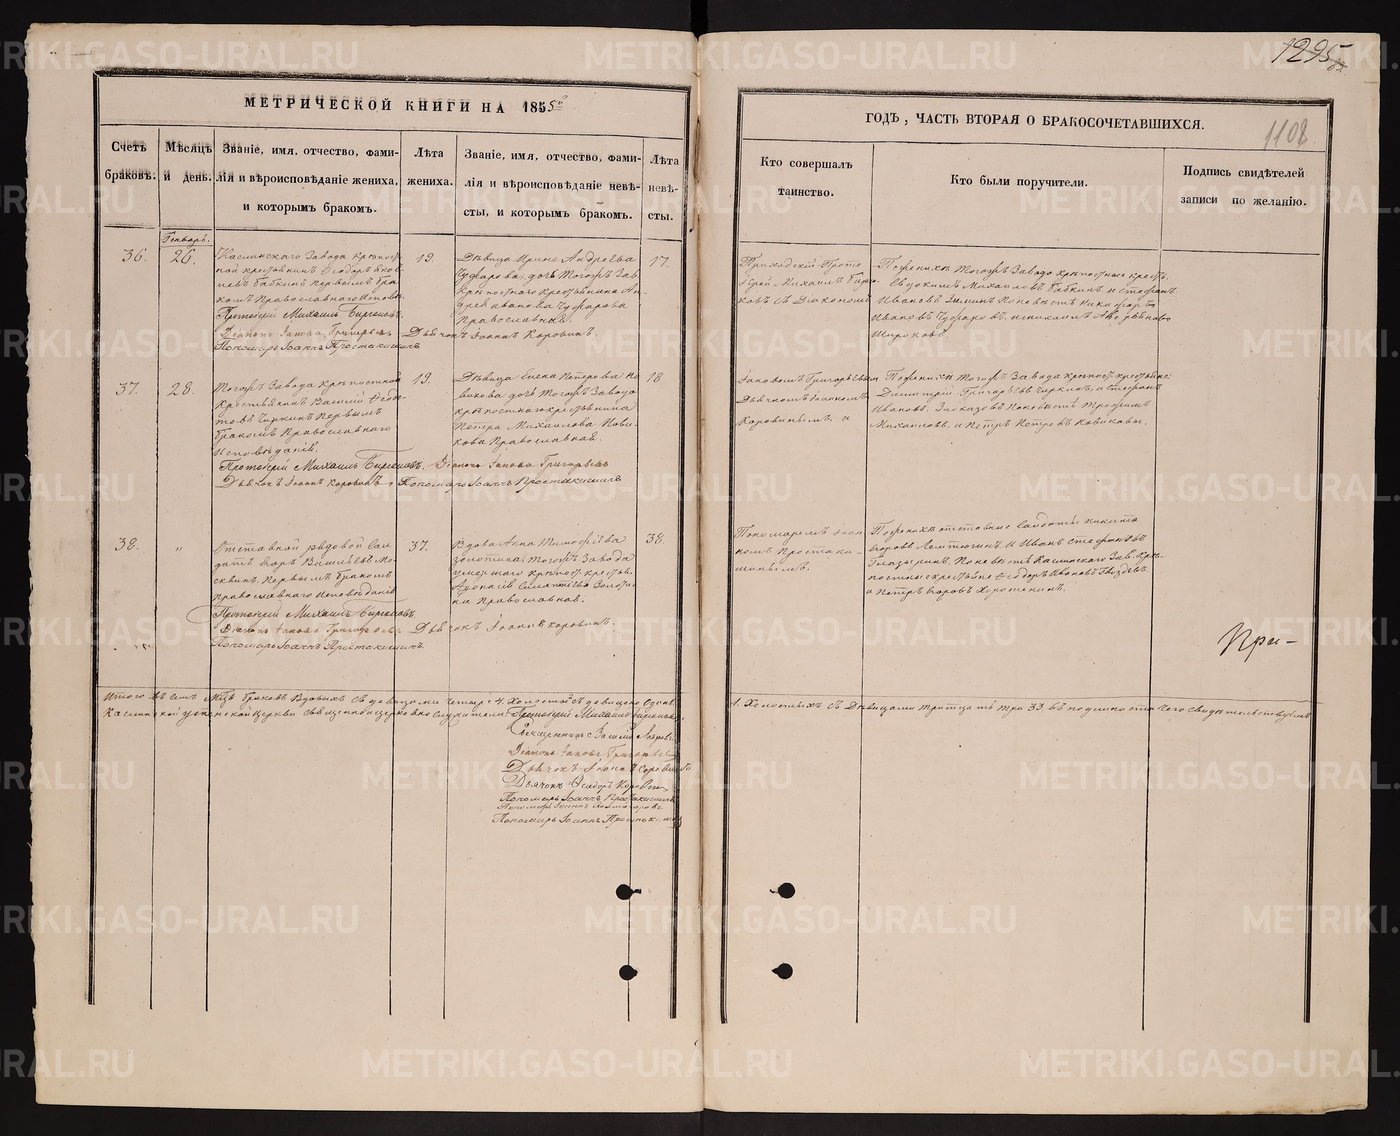 1295
МЕТРИЧЕСКОЙ КНИГИ НА 1855й
ГОДЪ, ЧАСТЬ ВТОРАЯ О БРАКОСОЧЕТАВШИХСЯ.
1108
Счетъ браковъ.
Мѣсяцъ и день.
Званіе, имя, отчество, фами-
лія и вѣроисповѣданіе жениха,
и которымъ бракомъ.
Лѣта
жениха.
Званіе, имя, отчество, фами-
лія и вѣроисповѣданіе невѣ-
сты, и которымъ бракомъ.
Лѣта
невѣ-
сты.
Кто совершалъ
таинство.
Кто были поручители.
Подпись свидѣтелей
записи по желанію.
Генварь.
36.
26.
Каслинскаго Завода крѣпост-
ной крестьянинъ Ѳеодоръ
Бабкинъ первымъ бра-
комъ Православнаго Исповѣ
Протоіерей Михаилъ Бирюковъ.
Діаконъ Іаковъ Григорьевъ
Пономарь Іоаннъ Простакишинъ
19.
Дѣвица Ирина Андреева
Чуфарова, дочь Тогожъ Зав
крѣпостнаго крестьянина Ан-
дрея Иванова Чуфарова
Православная.
Дьячокъ Іоаннъ Коровинъ.
17.
Приходскій Прото
іерей Михаилъ Бирю-
ковъ съ Діакономъ
По женихѣ Тогожъ Завода крѣпостные кресть.
Евдокимъ Михаиловъ Бабкинъ и Стефанъ
Ивановъ Зиминъ По невѣстѣ Никифоръ
Ивановъ Чуфаровъ и Михаилъ Андреяновъ
Широковъ.
37.
28.
Тогожъ Завода Крѣпостной
Крестьянинъ Василій Ѳедо-
товъ Чиркинъ Первымъ
бракомъ Православнаго
Исповѣданія.
Протоіерей Михаилъ Бирюковъ. Діаконъ Іаковъ Григорьевъ
Дьячокъ Іоаннъ Коровинъ, Пономарь Іоаннъ Простакишинъ
19.
Дѣвица Елена Петрова Но
викова дочь Тогожъ Завода
крѣпостнаго крестьянина
Петра Михаилова Нови-
кова Православная.
18.
Іаковомъ Григорьевымъ
Дьячкомъ Іоанномъ
Коровинымъ и
По женихѣ Тогожъ Завода крѣпост. крестьяне
Димитрій Григорьевъ Чиркинъ, и Стефанъ
Ивановъ. Заказовъ По невѣстѣ Трофимъ
Михаиловъ и Петръ Петровъ Новиковы.
38.
"
Отставной рядовой Сол
датъ Егоръ Васильевъ Мо
сквинъ Первымъ бракомъ
православнаго Исповѣданія
Протоіерей Михаилъ Бирюковъ
Діаконъ Іаковъ Григорьевъ
Пономарь Іоаннъ Простакишинъ
37.
Вдова Анна Тимофеева
Золотина, Тогожъ Завода
умершаго крѣпост. крестьян.
Золоти-
на Православная.
Дьячокъ Іоаннъ Коровинъ.
38.
Пономаремъ Іоан
номъ Простаки-
шинымъ.
По женихѣ отставные солдаты Никита
Егоровъ и Иванъ Стефановъ
Глазыринъ. По невѣстѣ Каслинскаго Зав. Крѣ-
постные крестьяне Ѳеодоръ Ивановъ Гвоздевъ.
и Петръ Егоровъ Хорошенинъ.
При-
Итого въ семъ мѣсяцѣ браковъ Вдовыхъ съ вдовицами Четыре 4. Холостой съ вдовицею Одинъ
1. Холостыхъ съ Дѣвицами тритцать три 33. въ подлинности чего Свидѣтельствуемъ
Каслинской Успенской Церкви Священно и церковно служители: Протоіерей Михаилъ Бирюковъ
Священникъ Василій
Діаконъ Іаковъ Григорьевъ
Дьячокъ Іоаннъ Коровинъ
Дьячокъ Ѳеодоръ Коровинъ
Пономарь Іоаннъ Простакишинъ
Пономарь Іоаннъ
Пономарь Іоаннъ Простакишинъ
METRIKI.GASO-URAL.RU